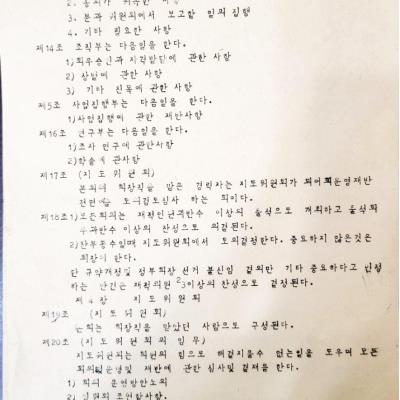 3. 분과 위원회에서 보고한 일의 집행
4. 기타 필요한 사항
제14조 조직부는 다음일을 한다.
관한 사항
2) 상벌에 관한 사항
3) 기타 친목에 관한 사항
제5조 사업집행부는 다음일을 한다.
1)사업집행에 관한 제반사항
제16조 연구부는 다음일을 한다.
1)조사 연구에 관한사항
2)학술에 관사항
제17조 (지도위원회)
본회의 회장직을 맡은 경력자는 지도위원회가 되어회운영제반
하는 회이다.
제18조1)모든회의는 재적인원과반수 이상의 출석으로 개회하고 출석회
원과반수 이상의 찬성으로 의결된다.
2)찬부동수일때 지도위원회에서 토의결정한다. 중요하지 않은것은
회장이 한다.
단 규약개정및 정부회장 선거 불신임 결의한 기타 중요하다고 인정
하는 안건은 재적회원 2/3이상의 찬성으로 결정된다.
제 4 장 지도위원회
제19조 (지도위원회)
본회는 회장직을 맡았던 사람으로 구성된다.
제20조 (지도위원회의 임무)
지도위원회는 회원의 힘으로 해결지을수 없는일을 도우며 모든
회의및운영및 재반에 관한 심사및결재를 한다.
1) 회의 운영방안토의
2) 조언할사항.